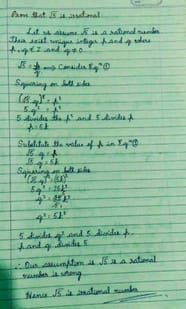 Prove that √5 is irrational
Let us assume √5 is a rational number
There exist unique integer p and q where
p, q ∈ Z and q ≠ 0.
√5 = p/q ⟹ Consider Eqⁿ ①
Squaring on both sides
(√5 q)² = p²
5 q² = p²
5 divides the p² and 5 divide p
p = 5k
Substitute the value of p in Eqⁿ ①
√5 q = p
√5 q = 5k
Squaring on both sides
(√5 q)² = (5k)²
5q² = 25k²
q² = 25k²/5
q² = 5k²
5 divides q² and 5 divides p.
p and q divides 5
∴ Our assumption is √5 is a rational
number is wrong
Hence √5 is irrational number